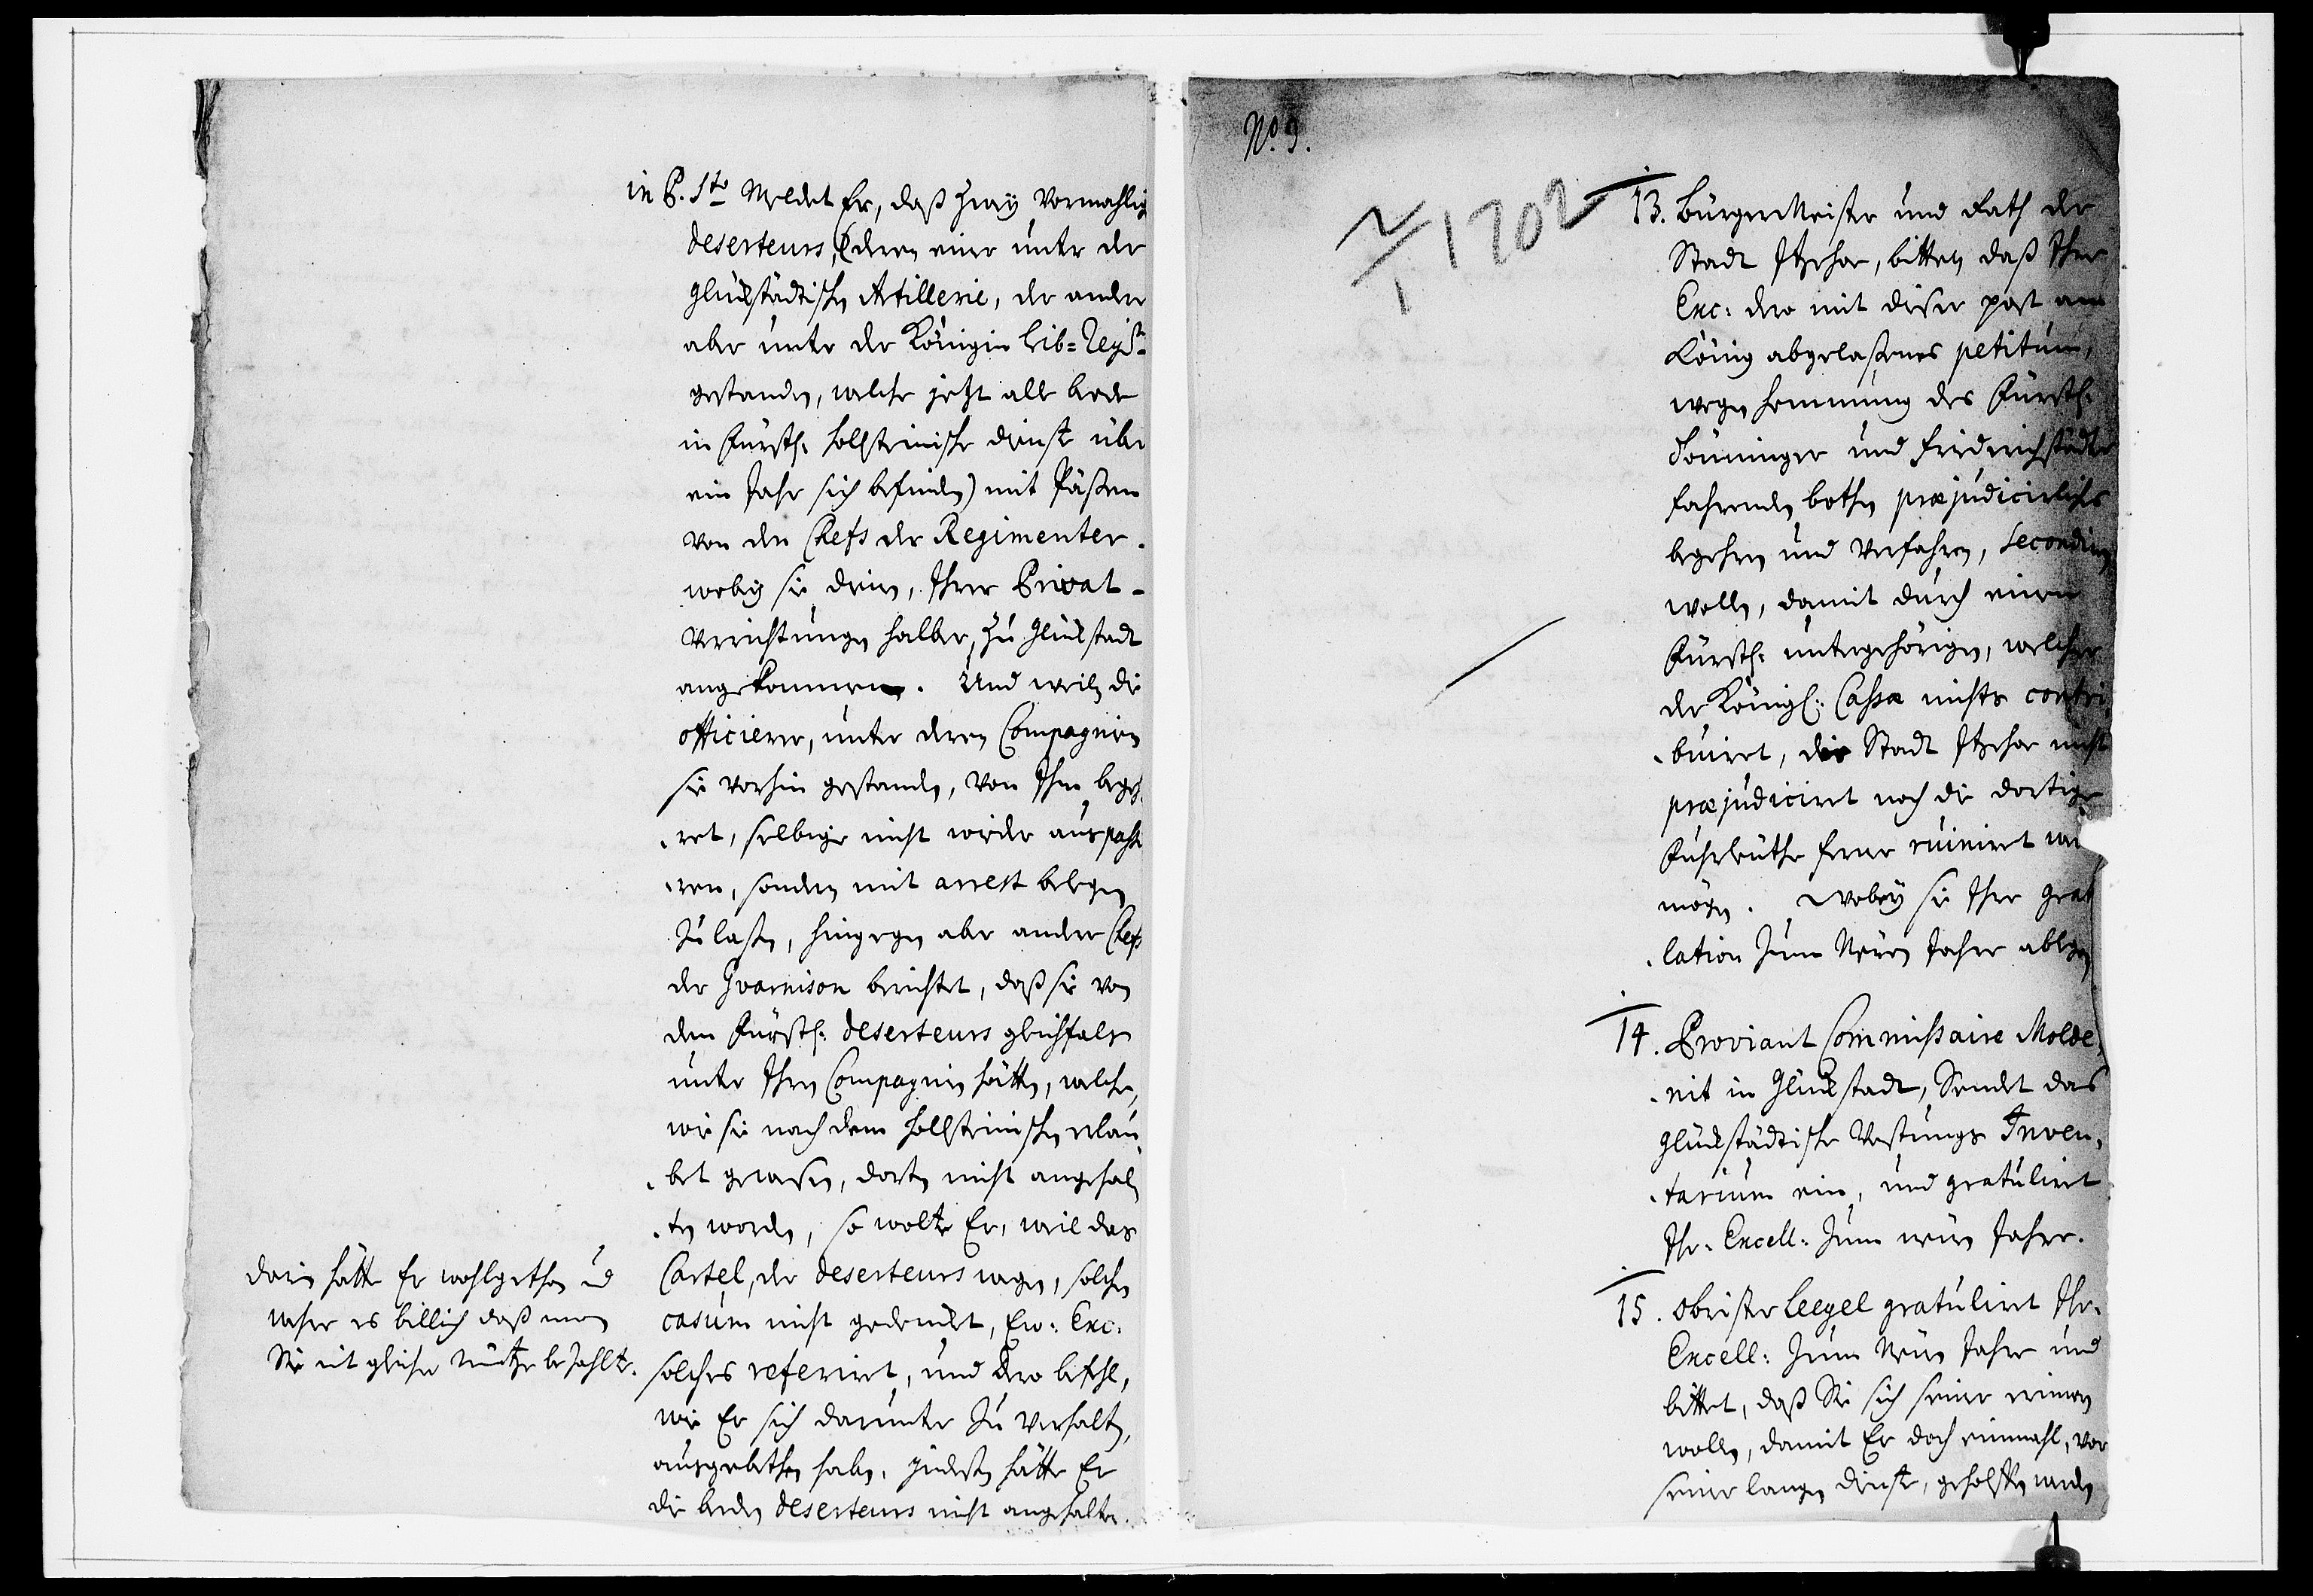 in P. Sto Meldet Er, daß zwey Vormahlig
deserteurs, (deren einer unter der
glückstädtischen Artillerie, der andere
aber unter der Königin Leib=Regt
gestanden, welche jetzt alle beede
in Fürstl. hollsteinische dienste über
ein Jahr sich befinden) mit Päßen
von den Chefs der Regimenter.
wobey sie dienen, Ihrer Privat-
Verrichtungen halber, zu Glückstadt
angekommen. Und weiln die
officierer, unter deren Compagnien
sie vorhin gestanden, von Ihm begeh-
ret, selbige nicht wieder auspassi
ren, sondern mit arrest belegen
zu laßen, hingegen aber andere Chefs
der Gvarnison berichtet, daß sie von
den Fürstl. deserteurs gleichfals
unter Ihren Compagnien hätten, welche,
wie sie nach dem hollsteinischen erlau-
bet gewesen, dorten nicht angehal-
ten worden, so wolte Er, weil das
Cartel, der deserteurs wegen, solchen
casum nicht gedencket, Ew. Exc.
solches referiret, und dero befehl,
wie Er sich darunter zu verhalten,
ausgebethen haben, jndeßen hätte Er
die beeden deserteurs nicht angehalten.
darin hätte Er wohlgethan ud
wehre es billich daß man
Sie mit gleicher Müntze bezahlte.
No. 9.
2/1 1702
13. BürgerMeister und Rath der
Stadt Itzehoe, bitten daß Ihre
Exc: dero mit dieser post am
König abgelaßenes petitum,
wegen hemmung des Fürstl.
Tönninger und Friederichstädter
fahrenden bothen præjudicirliches
begehren und verfahren, secondiren
wollen, damit durch einen
Fürstl. untergehörigen, welcher
der Königl. Cassa nichts contri
buiret, die Stadt Itzehoe nicht
præjudiciret noch die dortige
Fuhrleuthe ferner ruiniret
mögen. Wobey sie Ihre grat
lation zum Neuen Jahre ablegen
14. Proviant Commissaire Molde-
nit in Glückstadt, Sendet das
glückstädtische Vestungs Inven-
tarium ein, und gratuliret
Ihr. Excell: zum neuen Jahre.
15. Obrister Leegel gratuliret Ihr.
Excell: zum Neuen Jahre und
bittet, daß Sie sich seiner erinnern
wollen, damit Er doch einmahl, vor
seine lange dienste, geholffen werden